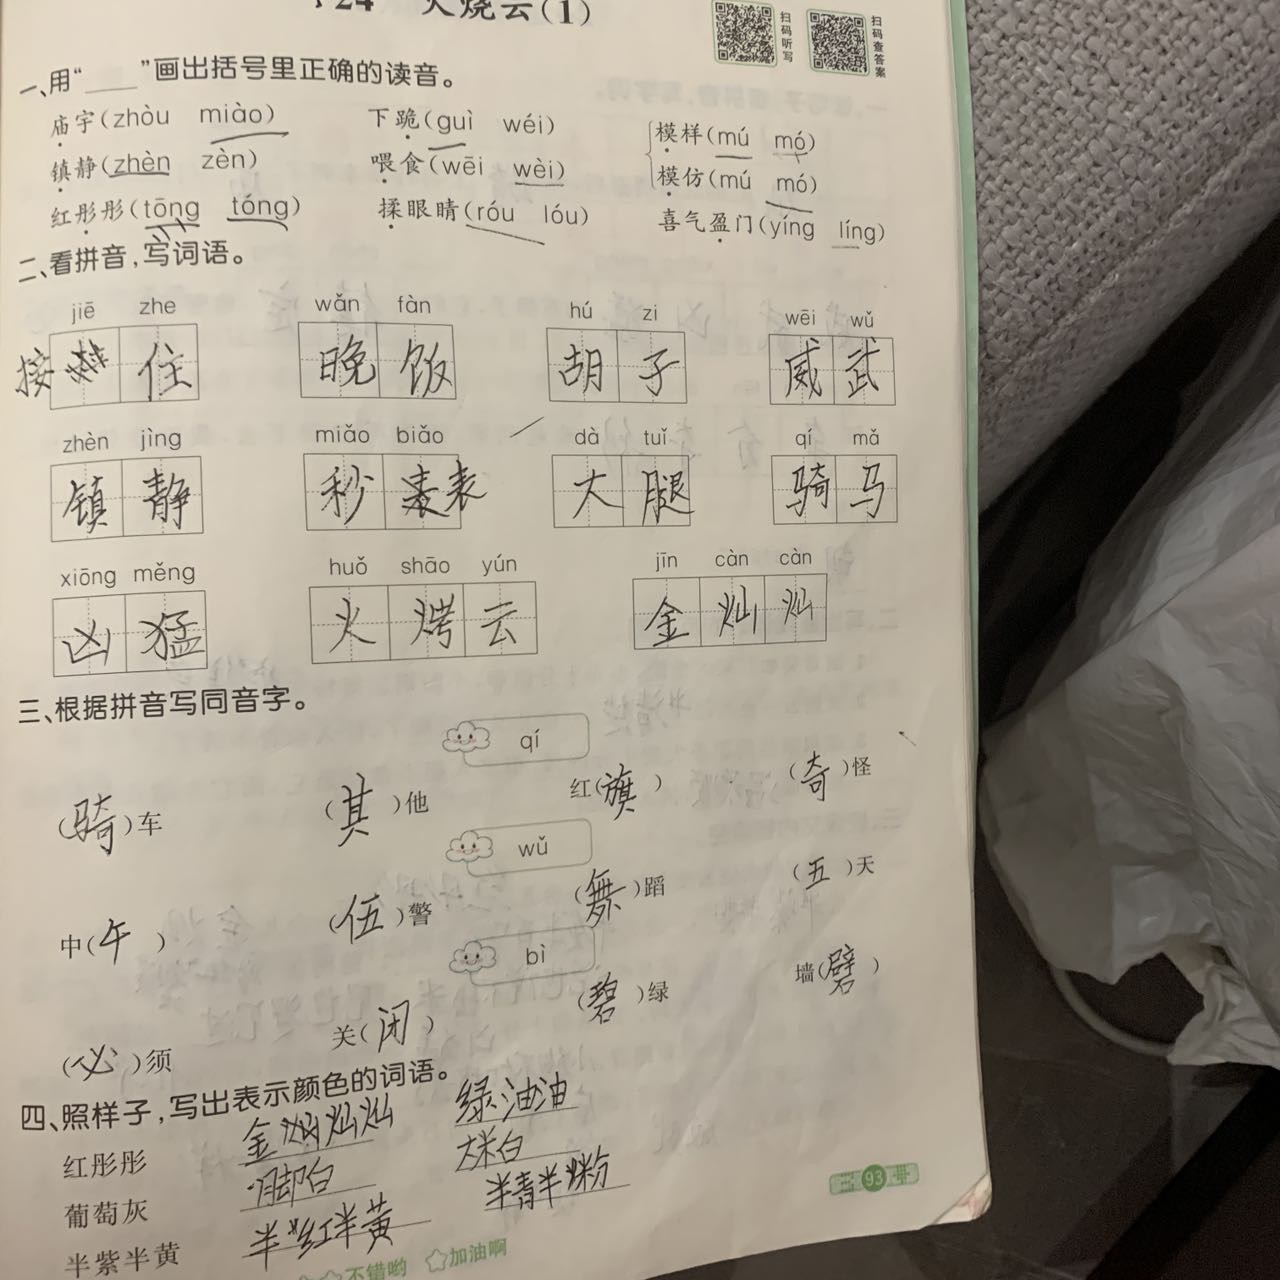 24 火烧云(1)
扫码听写
扫码查答案
一、用“____”画出括号里正确的读音。
庙宇(zhòu miào) 下跪(guì wéi) 模样(mú mó)
镇静(zhèn zèn) 喂食(wēi wèi) 模仿(mú mó)
红彤彤(tōng tóng) 揉眼睛(róu lóu) 喜气盈门(yíng líng)
二、看拼音,写词语。
jiē zhe wǎn fàn hú zi wēi wǔ
接住 晚饭 胡子 威武
zhèn jìng miǎo biǎo dà tuǐ qí mǎ
镇静 秒表 大腿 骑马
xiōng měng huǒ shāo yún jīn càn càn
凶猛 火烤云 金灿灿
三、根据拼音写同音字。
qí
(骑)车 (其)他 红(旗) (奇)怪
wǔ
中(午) (伍)警 (舞)蹈 (五)天
bì
(必)须 关(闭) (碧)绿 墙(壁)
四、照样子,写出表示颜色的词语。
红彤彤 金灿灿 绿油油
葡萄灰 脚白 大米白
半紫半黄 半红半黄 半青半粉
不错哟 加油啊
93